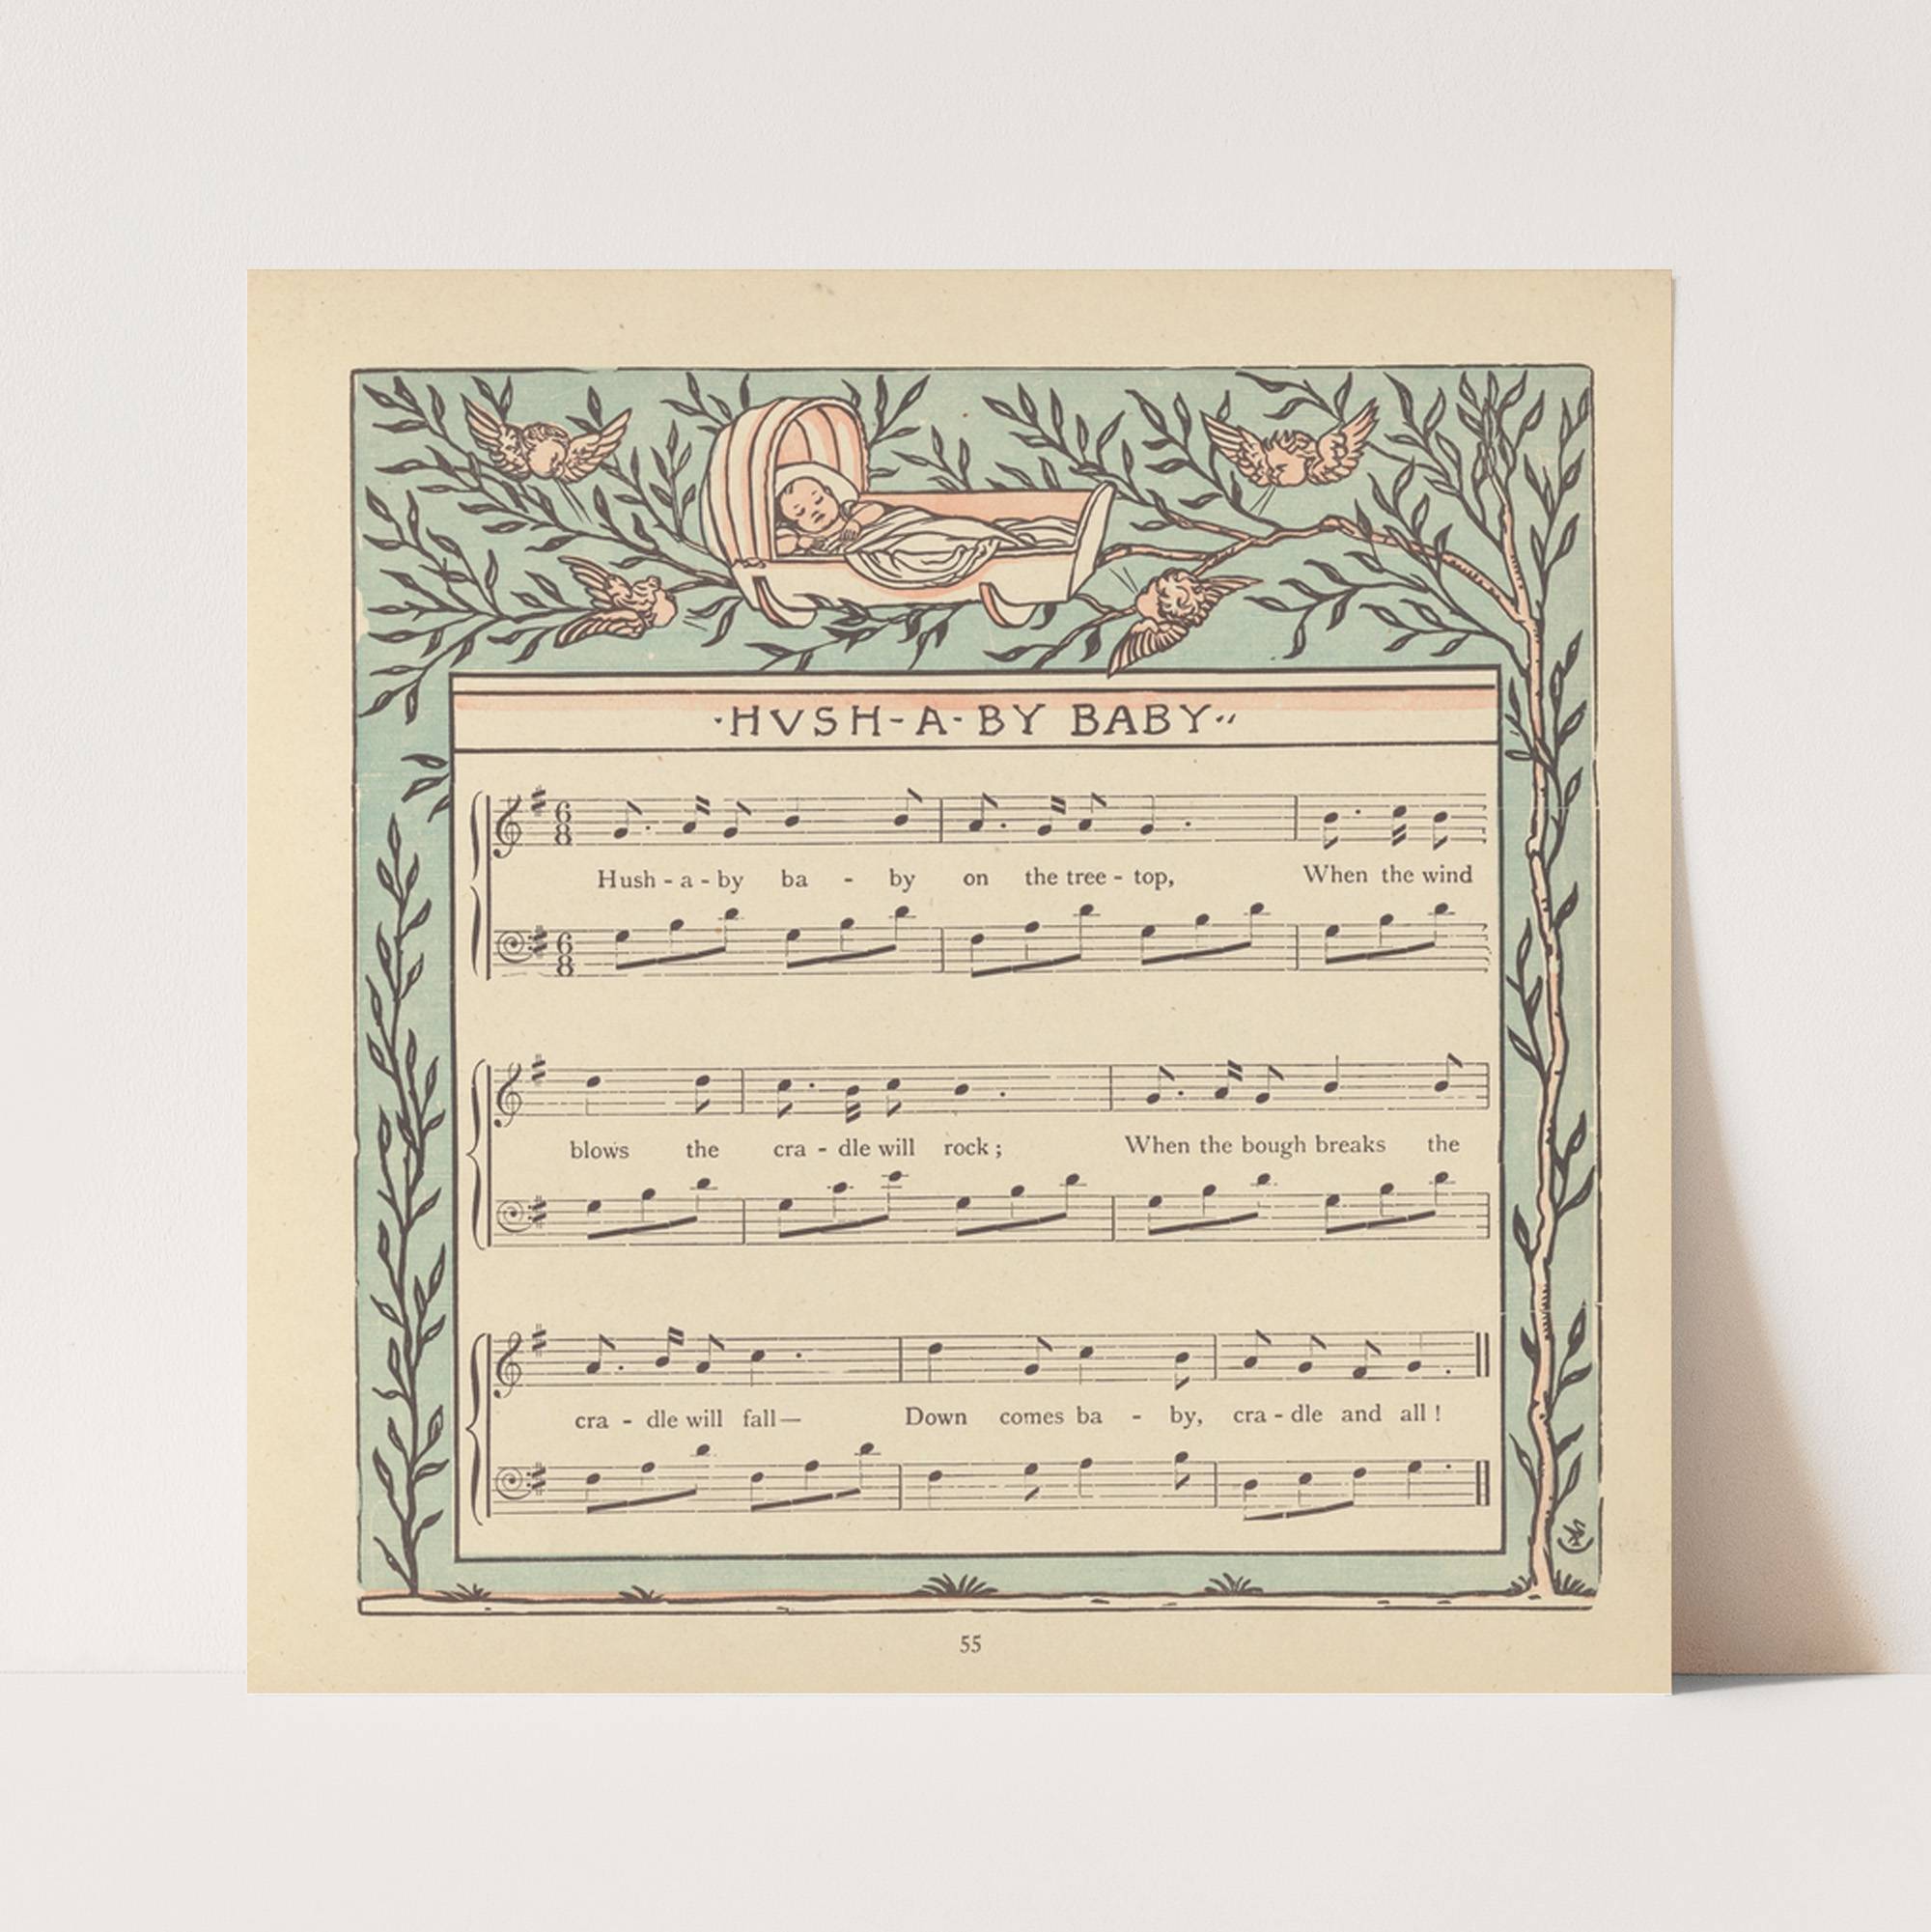 ·HVSH-A-BY BABY··
6
8
Hush - a - by ba - by on the tree - top, When the wind
6
8
blows the cra - dle will rock ; When the bough breaks the
cra - dle will fall— Down comes ba - by, cra - dle and all !
55